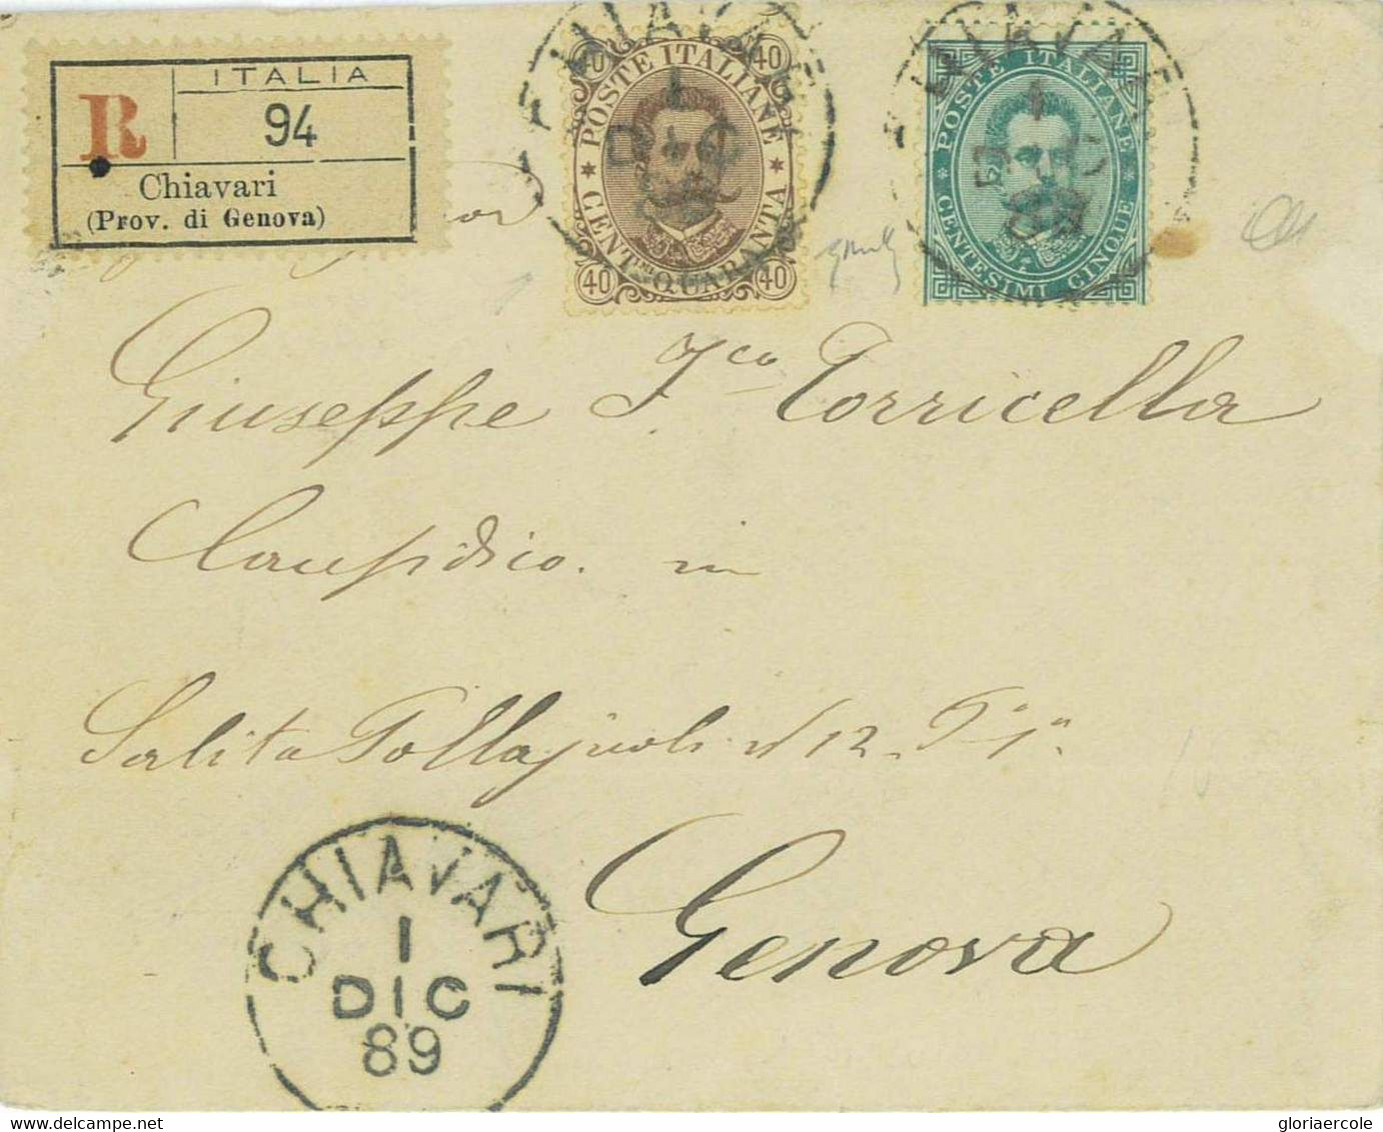 ITALIA
R 94
Chiavari
(Prov. di Genova)
40 40
POSTE ITALIANE
CENT.MI QUARANTA
40 40
POSTE ITALIANE
CENTESIMI CINQUE
CHIAVARI
1
DIC
89
Giuseppe Fco Torricella
in
Salita Pollajuoli N 12
Genova
CHIAVARI
1
DIC
89
gloriaercole